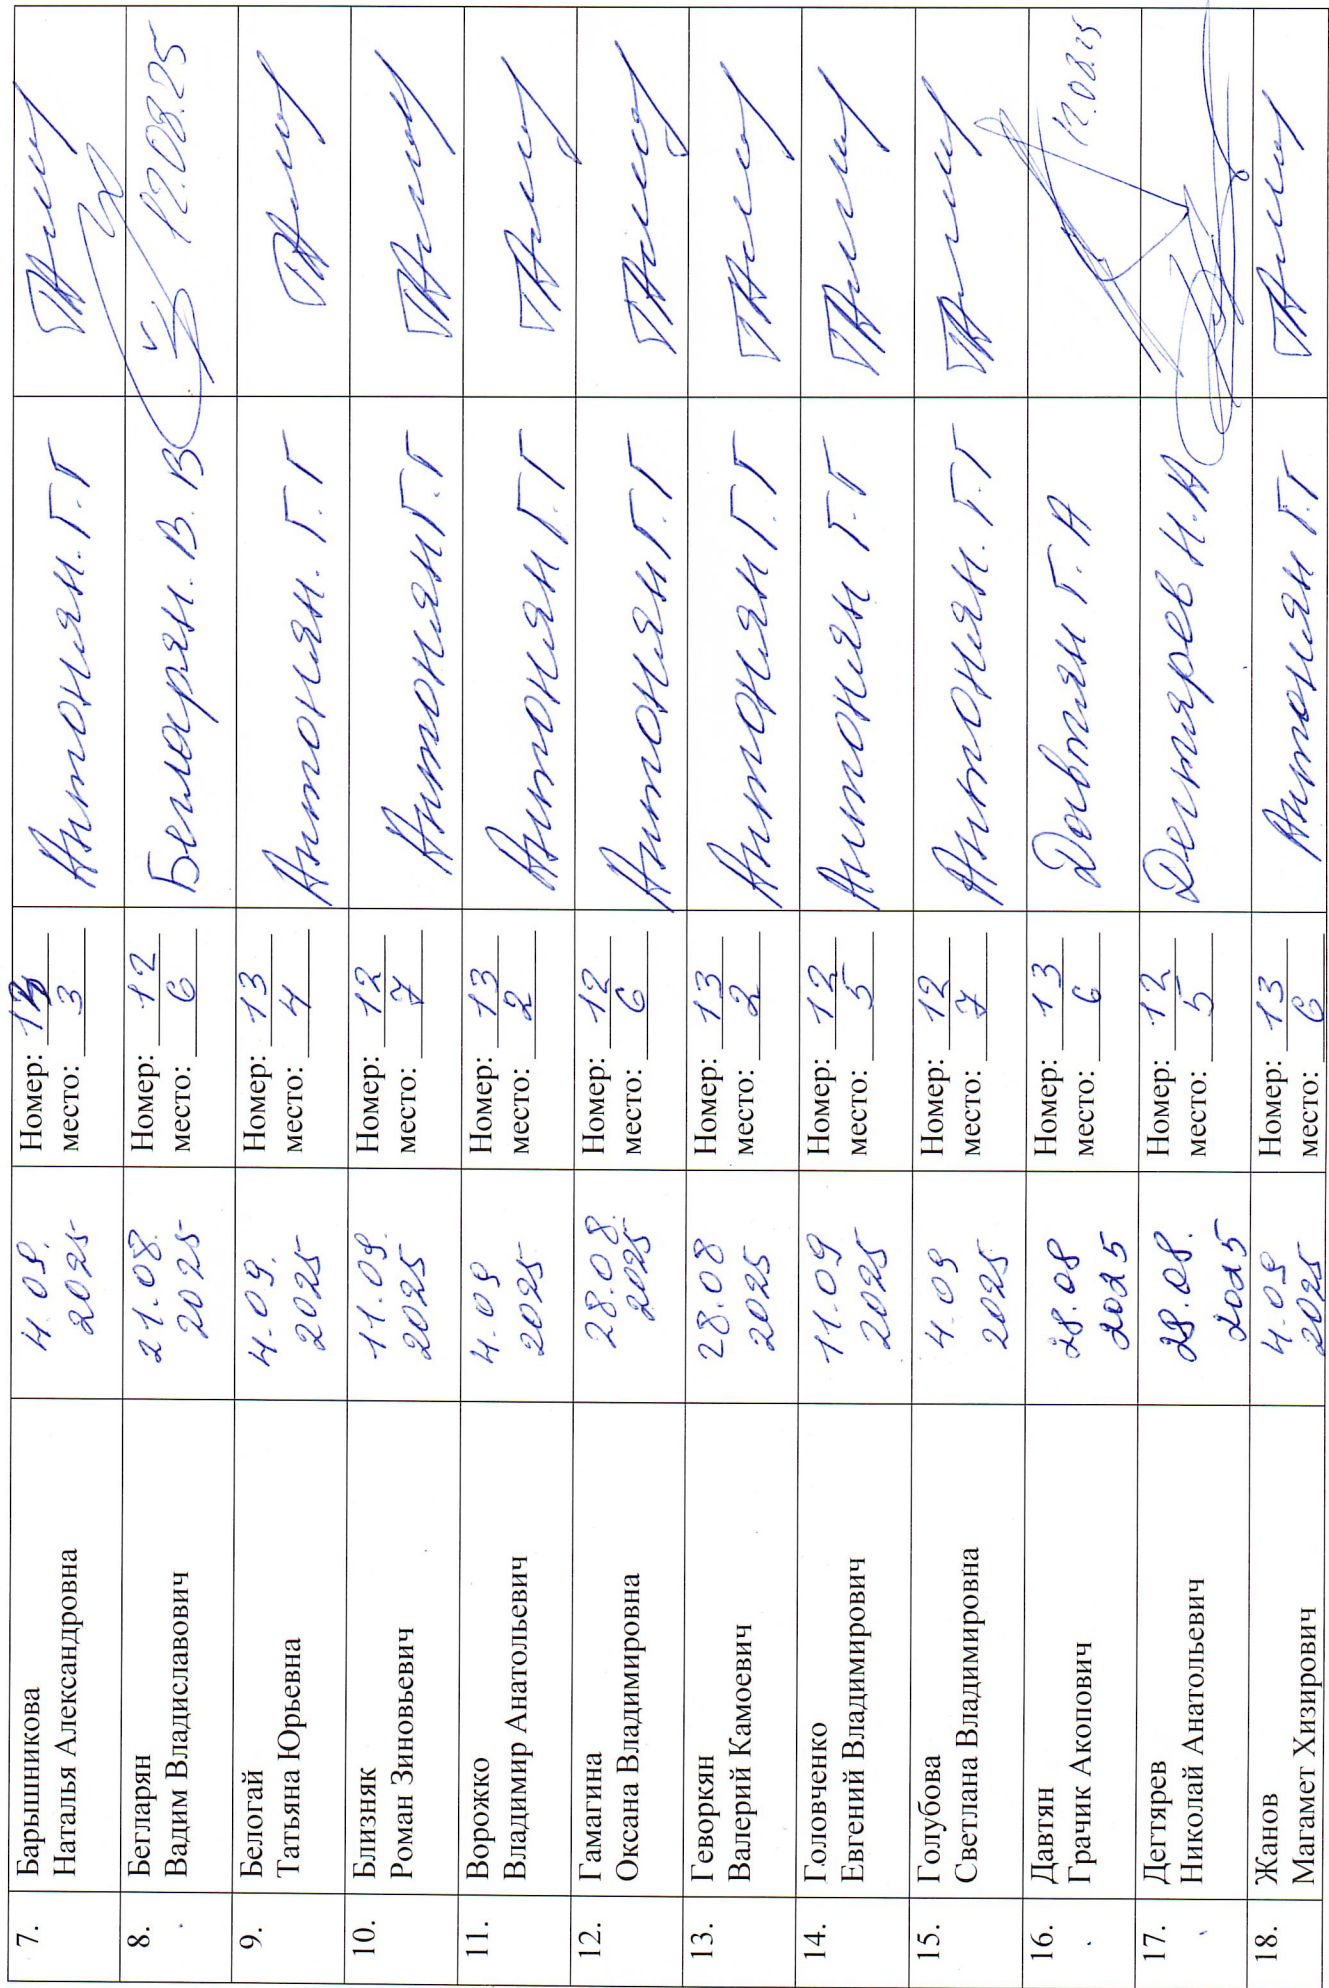 7.
Барышникова
Наталья Александровна
4.09.
2025
Номер:
место: 3
Антонян. Г.Г
8.
Бегларян
Вадим Владиславович
21.08.
2025
Номер: 12
место: 6
Бегларян. В. В
12.08.25
9.
Белогай
Татьяна Юрьевна
4.09.
2025
Номер: 13
место: 4
Антонян. Г.Г
10.
Близняк
Роман Зиновьевич
11.09.
2025
Номер: 12
место: 7
Антонян Г.Г
11.
Ворожко
Владимир Анатольевич
4.09
2025
Номер: 13
место: 2
Антонян Г.Г
12.
Гамагина
Оксана Владимировна
28.08.
2025
Номер: 12
место: 6
Антонян Г.Г
13.
Геворкян
Валерий Камоевич
28.08
2025
Номер: 13
место: 2
Антонян Г.Г
14.
Головченко
Евгений Владимирович
11.09
2025
Номер: 12
место: 5
Антонян Г.Г
15.
Голубова
Светлана Владимировна
4.09
2025
Номер: 12
место: 7
Антонян. Г.Г
16.
Давтян
Грачик Акопович
28.08
2025
Номер: 13
место: 6
Давтян Г.А
12.08.25
17.
Дегтярев
Николай Анатольевич
28.08.
2025
Номер: 12
место: 5
Дегтярев Н.А
18.
Жанов
Магамет Хизирович
4.09
2025
Номер: 13
место: 6
Антонян Г.Г